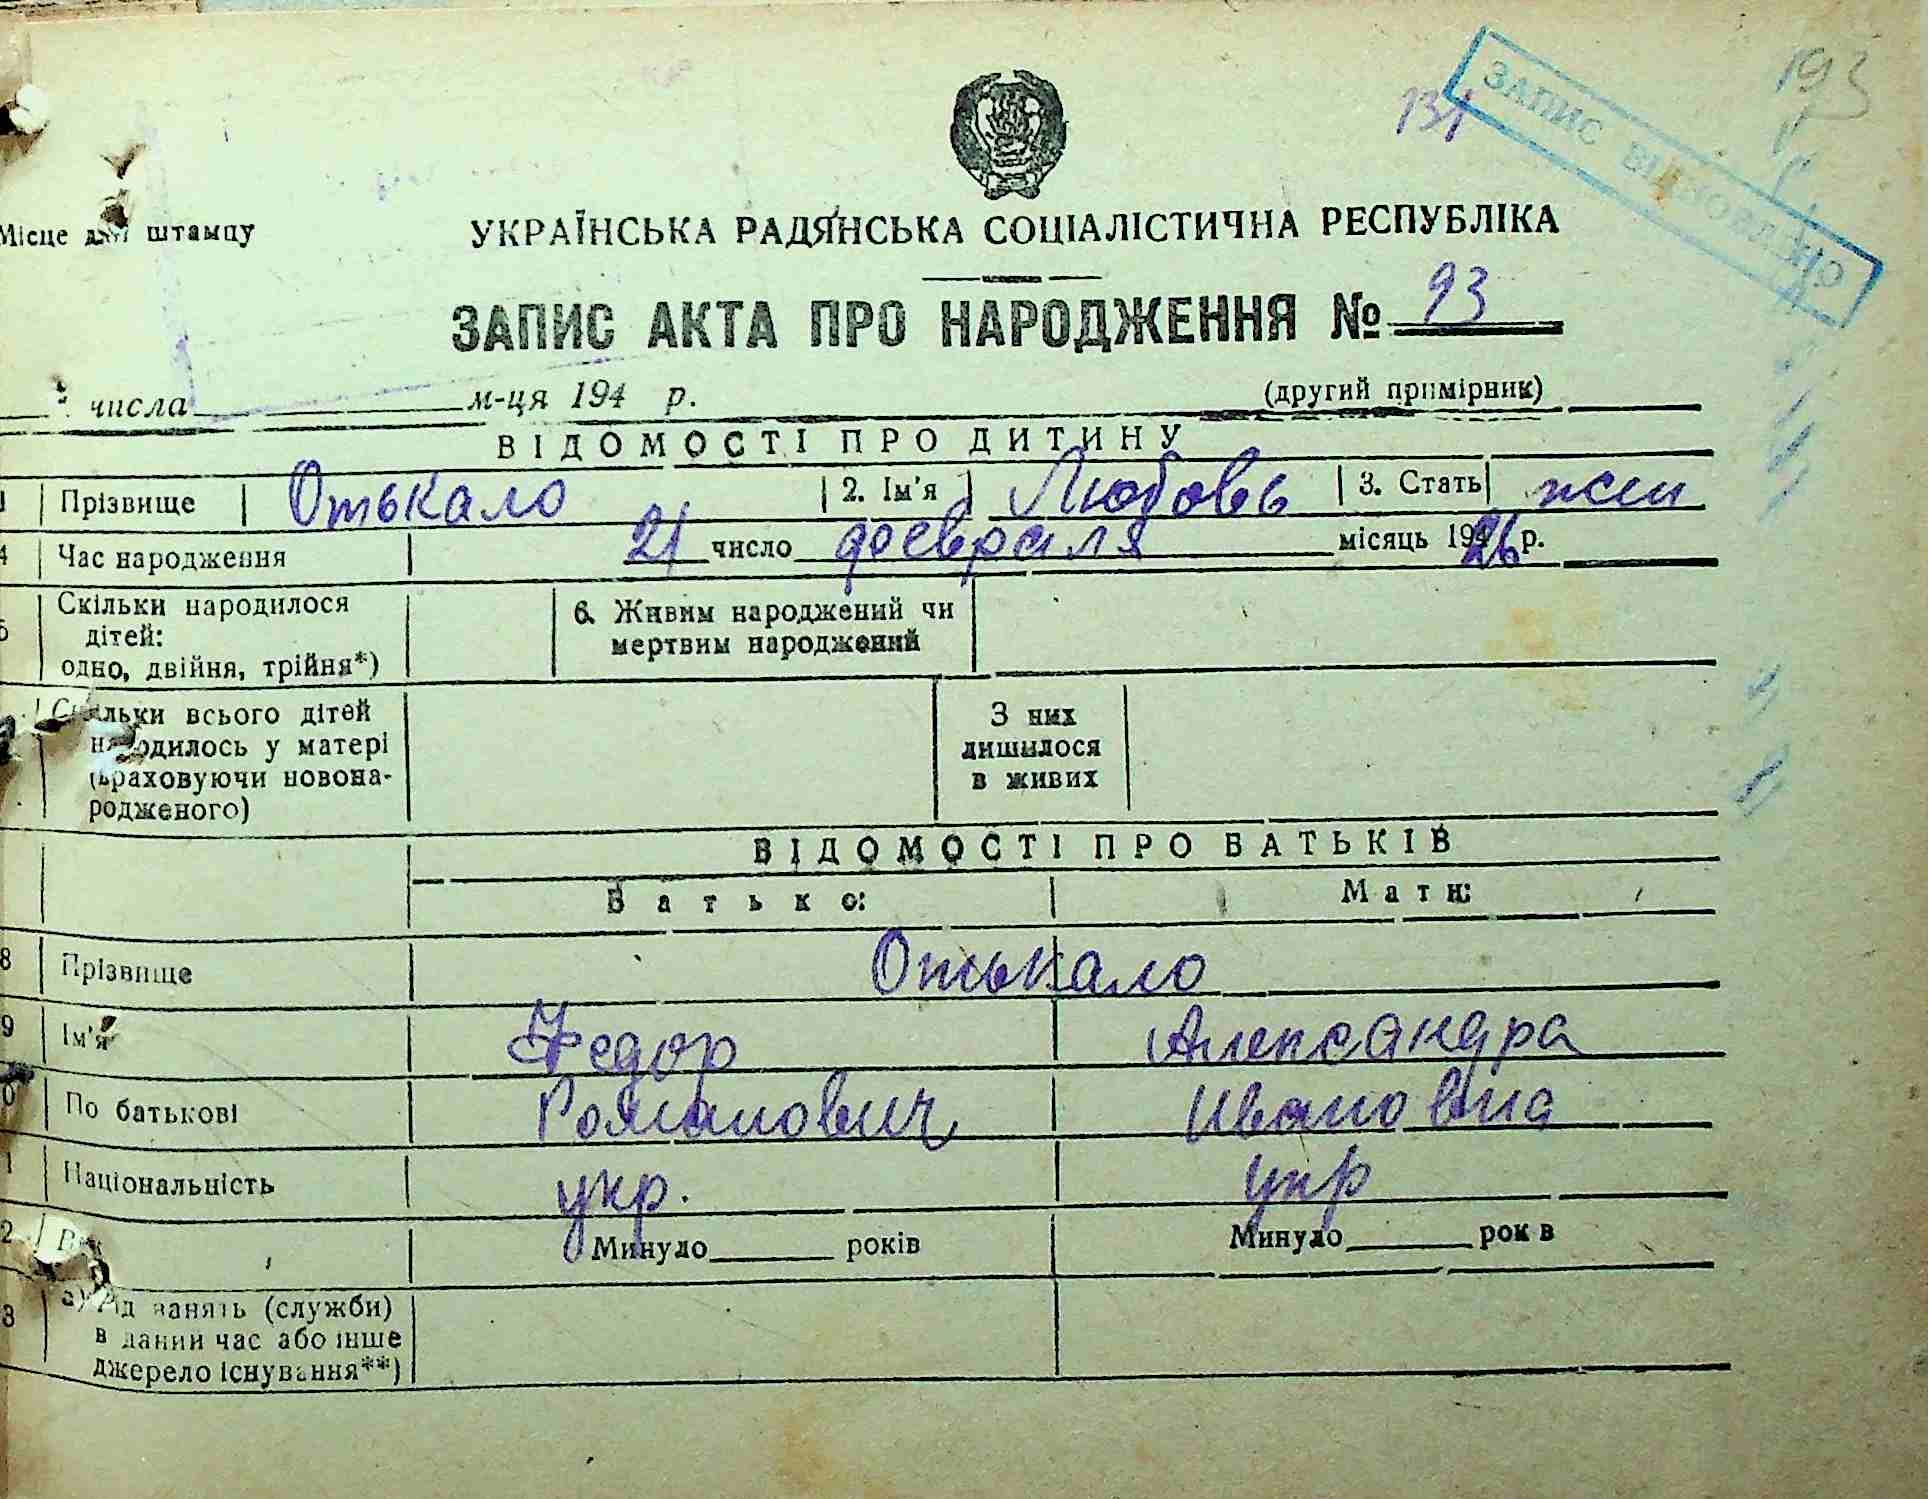 193
131
ЗАПИС ВІДНОВЛЕНО
Місце для штампу
УКРАЇНСЬКА РАДЯНСЬКА СОЦІАЛІСТИЧНА РЕСПУБЛІКА
ЗАПИС АКТА ПРО НАРОДЖЕННЯ № 93
числа м-ця 194 р. (другий примірник)
ВІДОМОСТІ ПРО ДИТИНУ
Прізвище Отькало 2. Ім'я Любовь 3. Стать жен
4 Час народження 21 число февраля місяць 1926 р.
Скільки народилося дітей: одно, двійня, трійня*) 6. Живим народжений чи мертвим народжений
Скільки всього дітей народилось у матері (враховуючи новонародженого) З них лишилося в живих
ВІДОМОСТІ ПРО БАТЬКІВ
Батько: Мати:
8 Прізвище Отькало
9 Ім'я Федор Александра
0 По батькові Романович Ивановна
1 Національність укр. укр
2 Вік Минуло років Минуло років
3 а) Рід занять (служби) в даний час або інше джерело існування**)